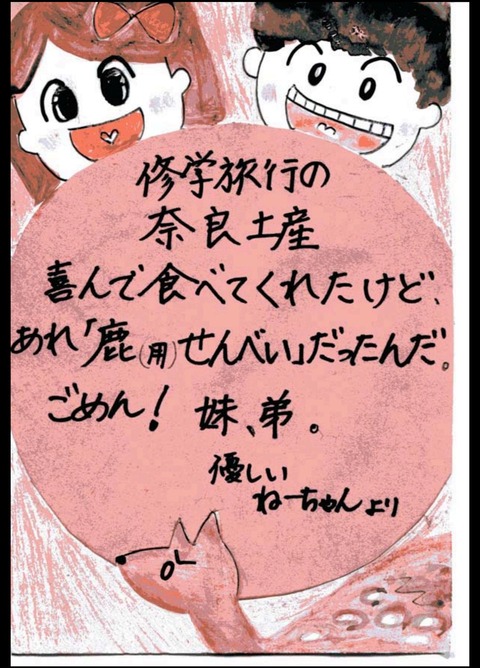 修学旅行の
奈良土産
喜んで食べてくれたけど、
あれ「鹿(用)せんべい」だったんだ。
ごめん! 妹、弟。
優しい
ねーちゃんより